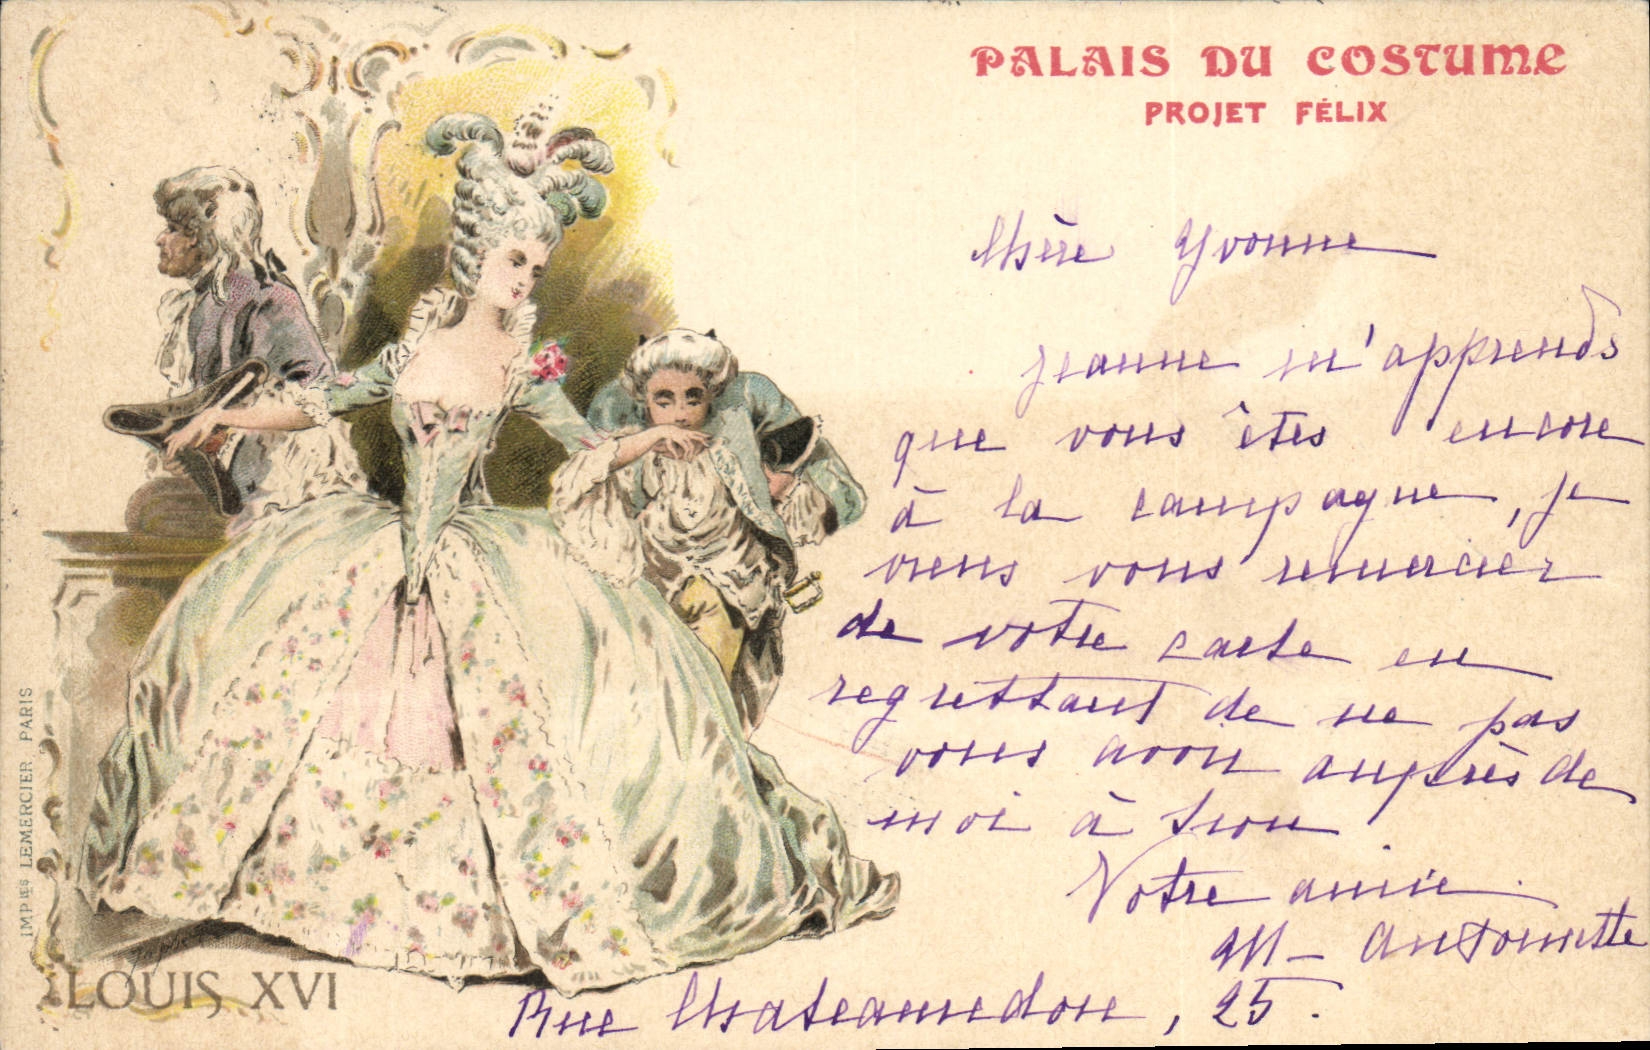 PALAIS DU COSTUME
PROJET FÉLIX
Chère Yvonne
Jeanne m'apprends
que vous êtes encore
à la campagne, je
viens vous remercier
de votre carte en
regrettant de ne pas
vous avoir auprès de
moi à Lion
Votre amie.
M- Antoinette
Rue Chateauredon, 25.
LOUIS XVI
IMPIES LEMERCIER PARIS